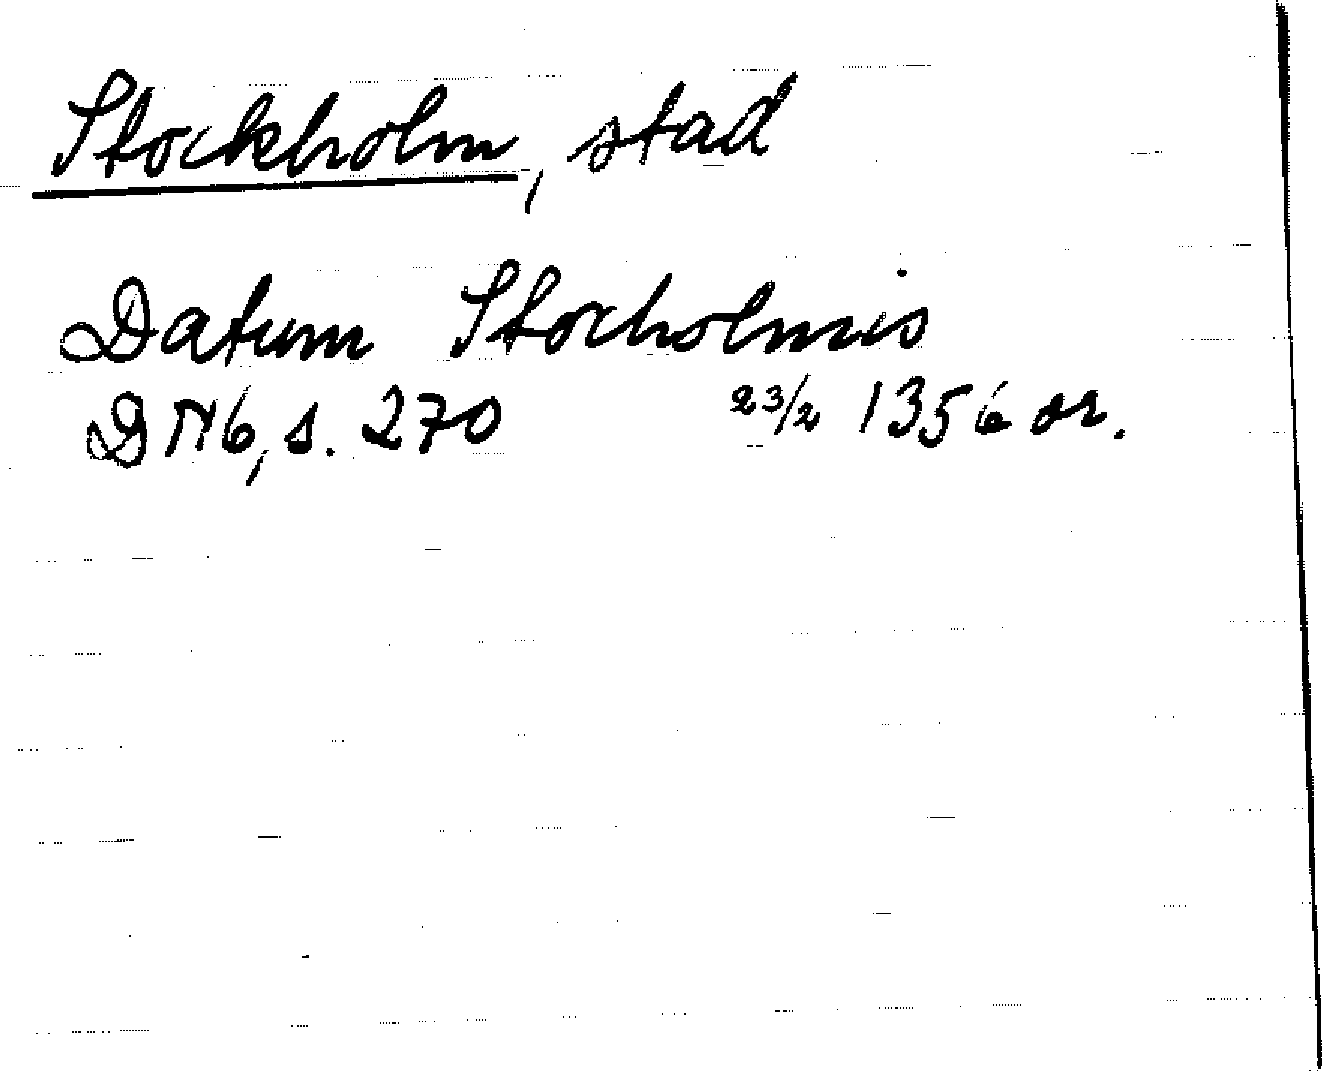 Stockholm, stad
Datum Stocholmis
DN6, s. 270 23/2 1356 or.